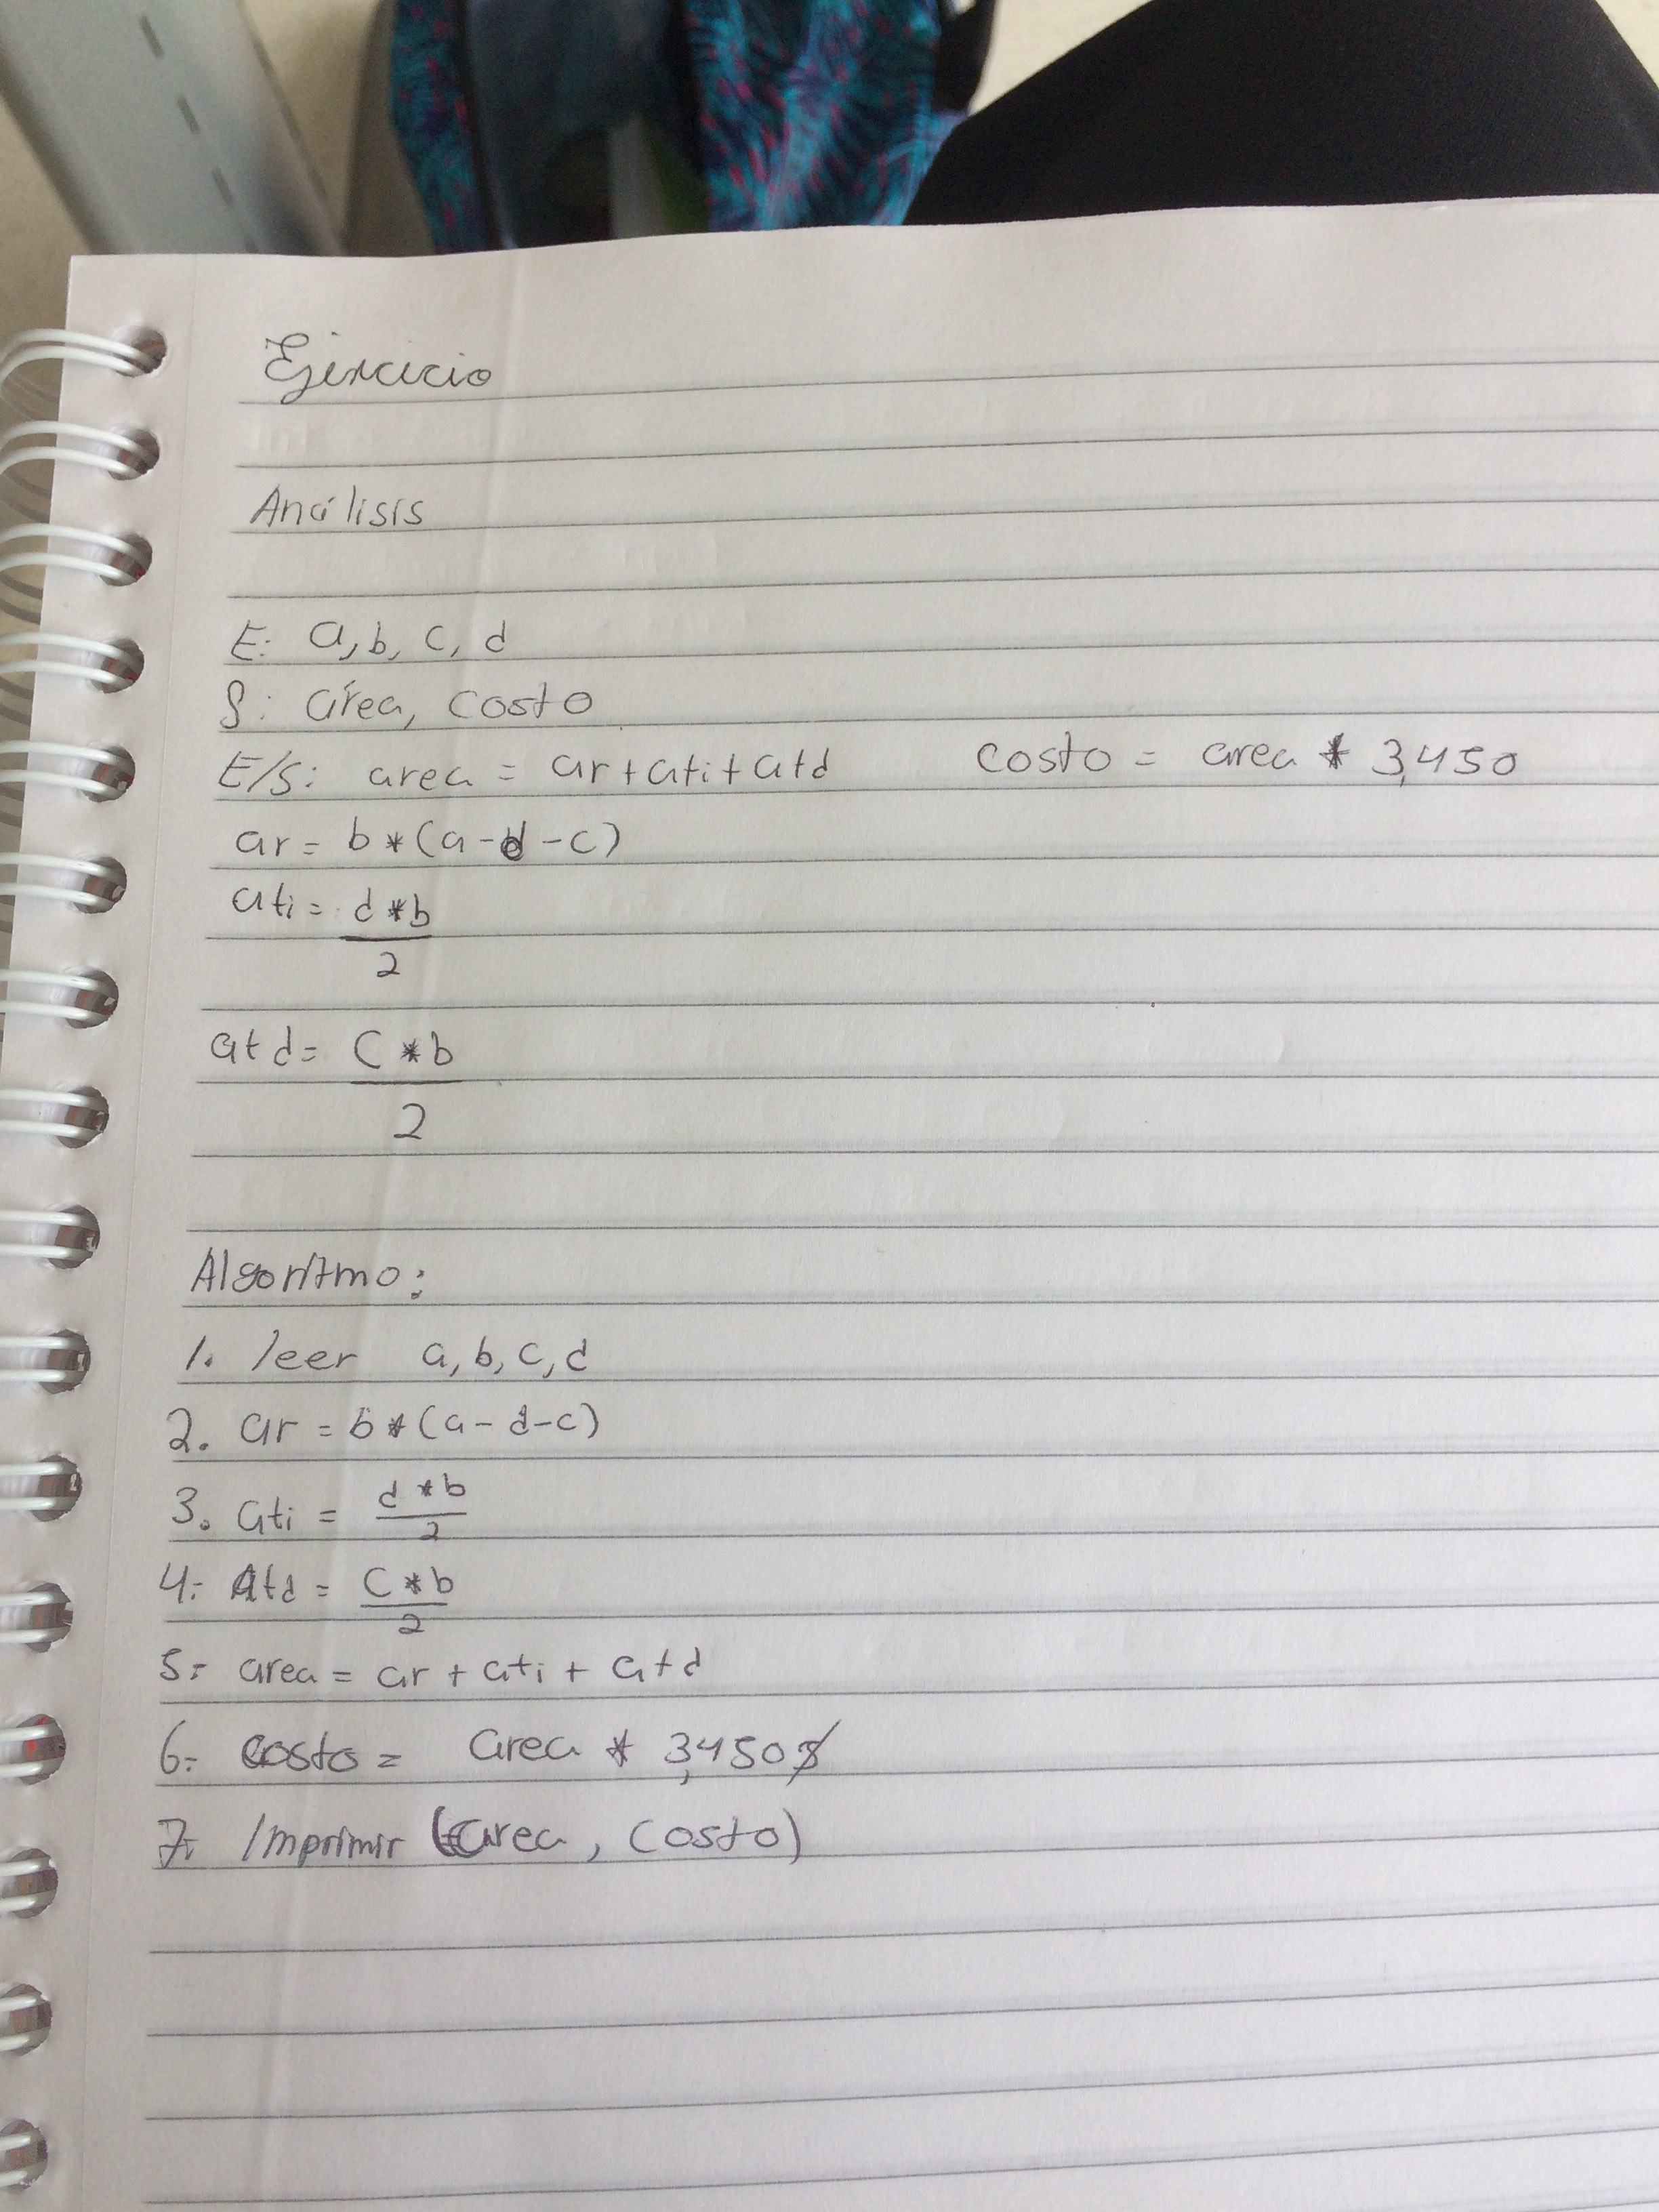 Ejercicio
Análisis
E: a, b, c, d
S: área, costo
E/S: area = ar + ati + atd costo = area * 3,450
ar = b * (a - d - c)
ati = d * b
2
atd = c * b
2
Algoritmo:
1. leer a, b, c, d
2. ar = b * (a - d - c)
3. ati = d * b
2
4- Atd = c * b
2
5- area = ar + ati + atd
6- costo = area * 3,450$
7- Imprimir (area, costo)